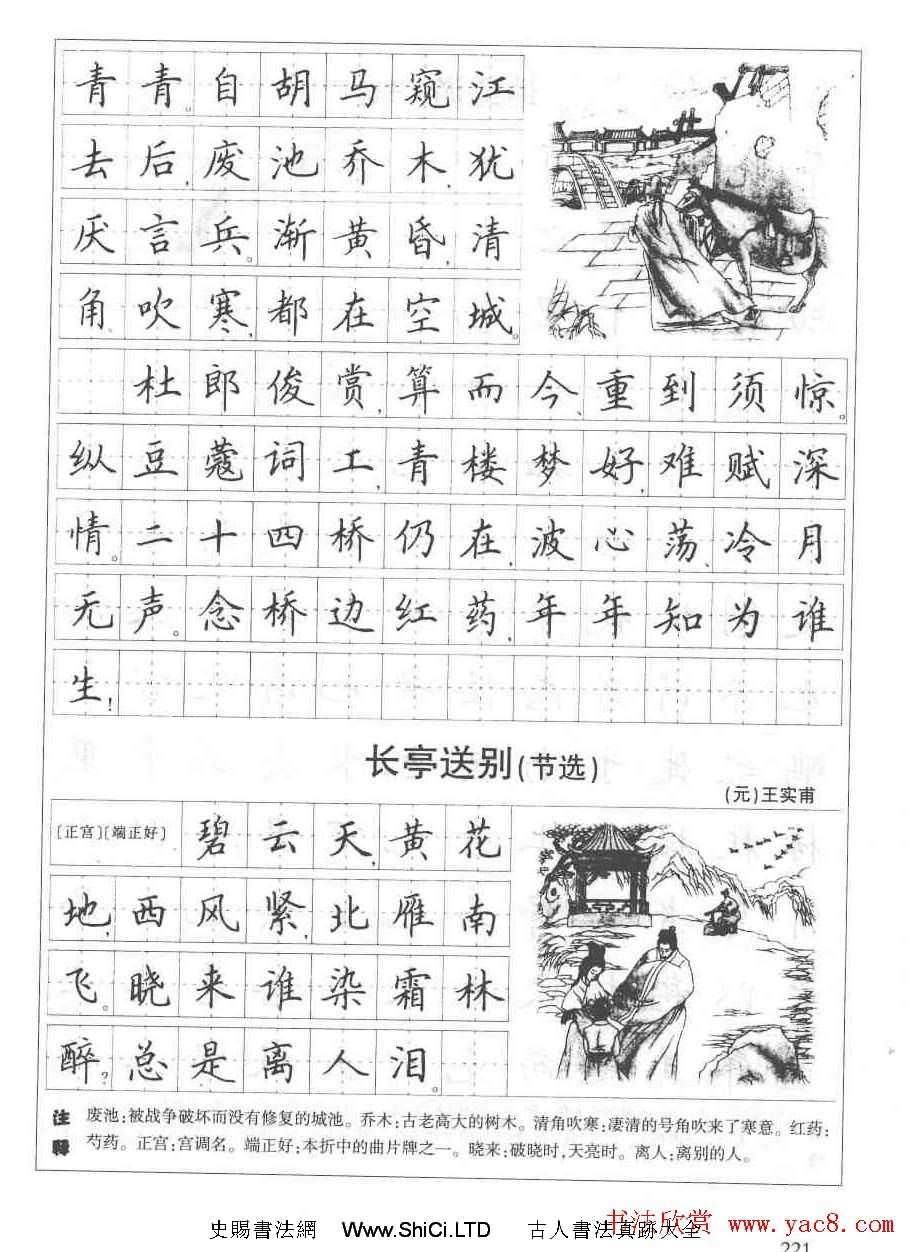 青青。自胡马窥江
去后,废池乔木,犹
厌言兵。渐黄昏,清
角吹寒,都在空城。
杜郎俊赏,算而今、重到须惊。
纵豆蔻词工,青楼梦好,难赋深
情。二十四桥仍在,波心荡、冷月
无声。念桥边红药,年年知为谁
生!
长亭送别(节选)
(元)王实甫
〔正宫〕〔端正好〕碧云天,黄花
地,西风紧,北雁南
飞。晓来谁染霜林
醉?总是离人泪。
注释 废池:被战争破坏而没有修复的城池。乔木:古老高大的树木。清角吹寒:凄清的号角吹来了寒意。红药:
芍药。正宫:宫调名。端正好:本折中的曲片牌之一。晓来:破晓时,天亮时。离人:离别的人。
书法欣赏 www.yac8.com
史賜書法網 Www.ShiCi.LTD 古人書法真跡大全
221